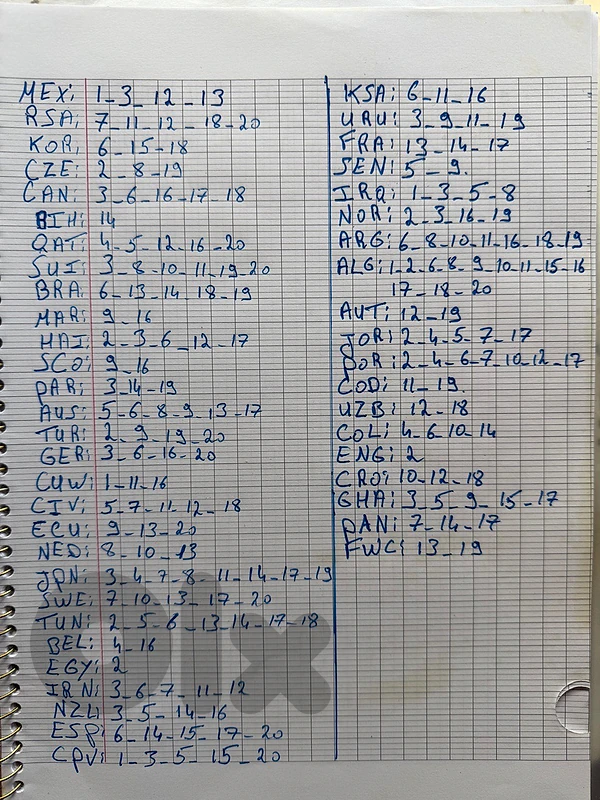 MEX: 1_3_12_13
RSA: 7_11_12_18-20
KOR: 6_15-18
CZE: 2_8_19
CAN: 3_6_16_17_18
BIH: 14
QAT: 4_5_12_16_20
SUI: 3_8_10_11_19_20
BRA: 6_13_14_18_19
MAR: 9_16
HAI: 2_3_6_12_17
SCO: 9_16
PAR: 3_14-19
AUS: 5_6_8_9_13_17
TUR: 2_9_19_20
GER: 3_6_16_20
CUW: 1_11_16
CIV: 5_7_11_12_18
ECU: 9_13_20
NED: 8_10_13
JPN: 3_4_7_8_11_14_17_19
SWE: 7_10_13_17_20
TUN: 2_5_6_13_14_17_18
BEL: 4_16
EGY: 2
IRN: 3_6_7_11_12
NZL: 3_5_14_16
ESP: 6_14_15_17_20
CPV: 1_3_5_15_20
KSA: 6_11_16
URU: 3_9_11_19
FRA: 13_14_17
SEN: 5_9.
IRQ: 1_3_5_8
NOR: 2_3_16_19
ARG: 6_8_10_11_16_18_19
ALG: 1_2_6_8_9_10_11_15_16
17_18_20
AUT: 12_19
JOR: 2_4_5_7_17
POR: 2_4_6_7_10_12_17
COD: 11_19.
UZB: 12_18
COL: 4_6_10_14
ENG: 2
CRO: 10_12_18
GHA: 3_5_9_15_17
PAN: 7_14_17
FWC: 13_19
olx